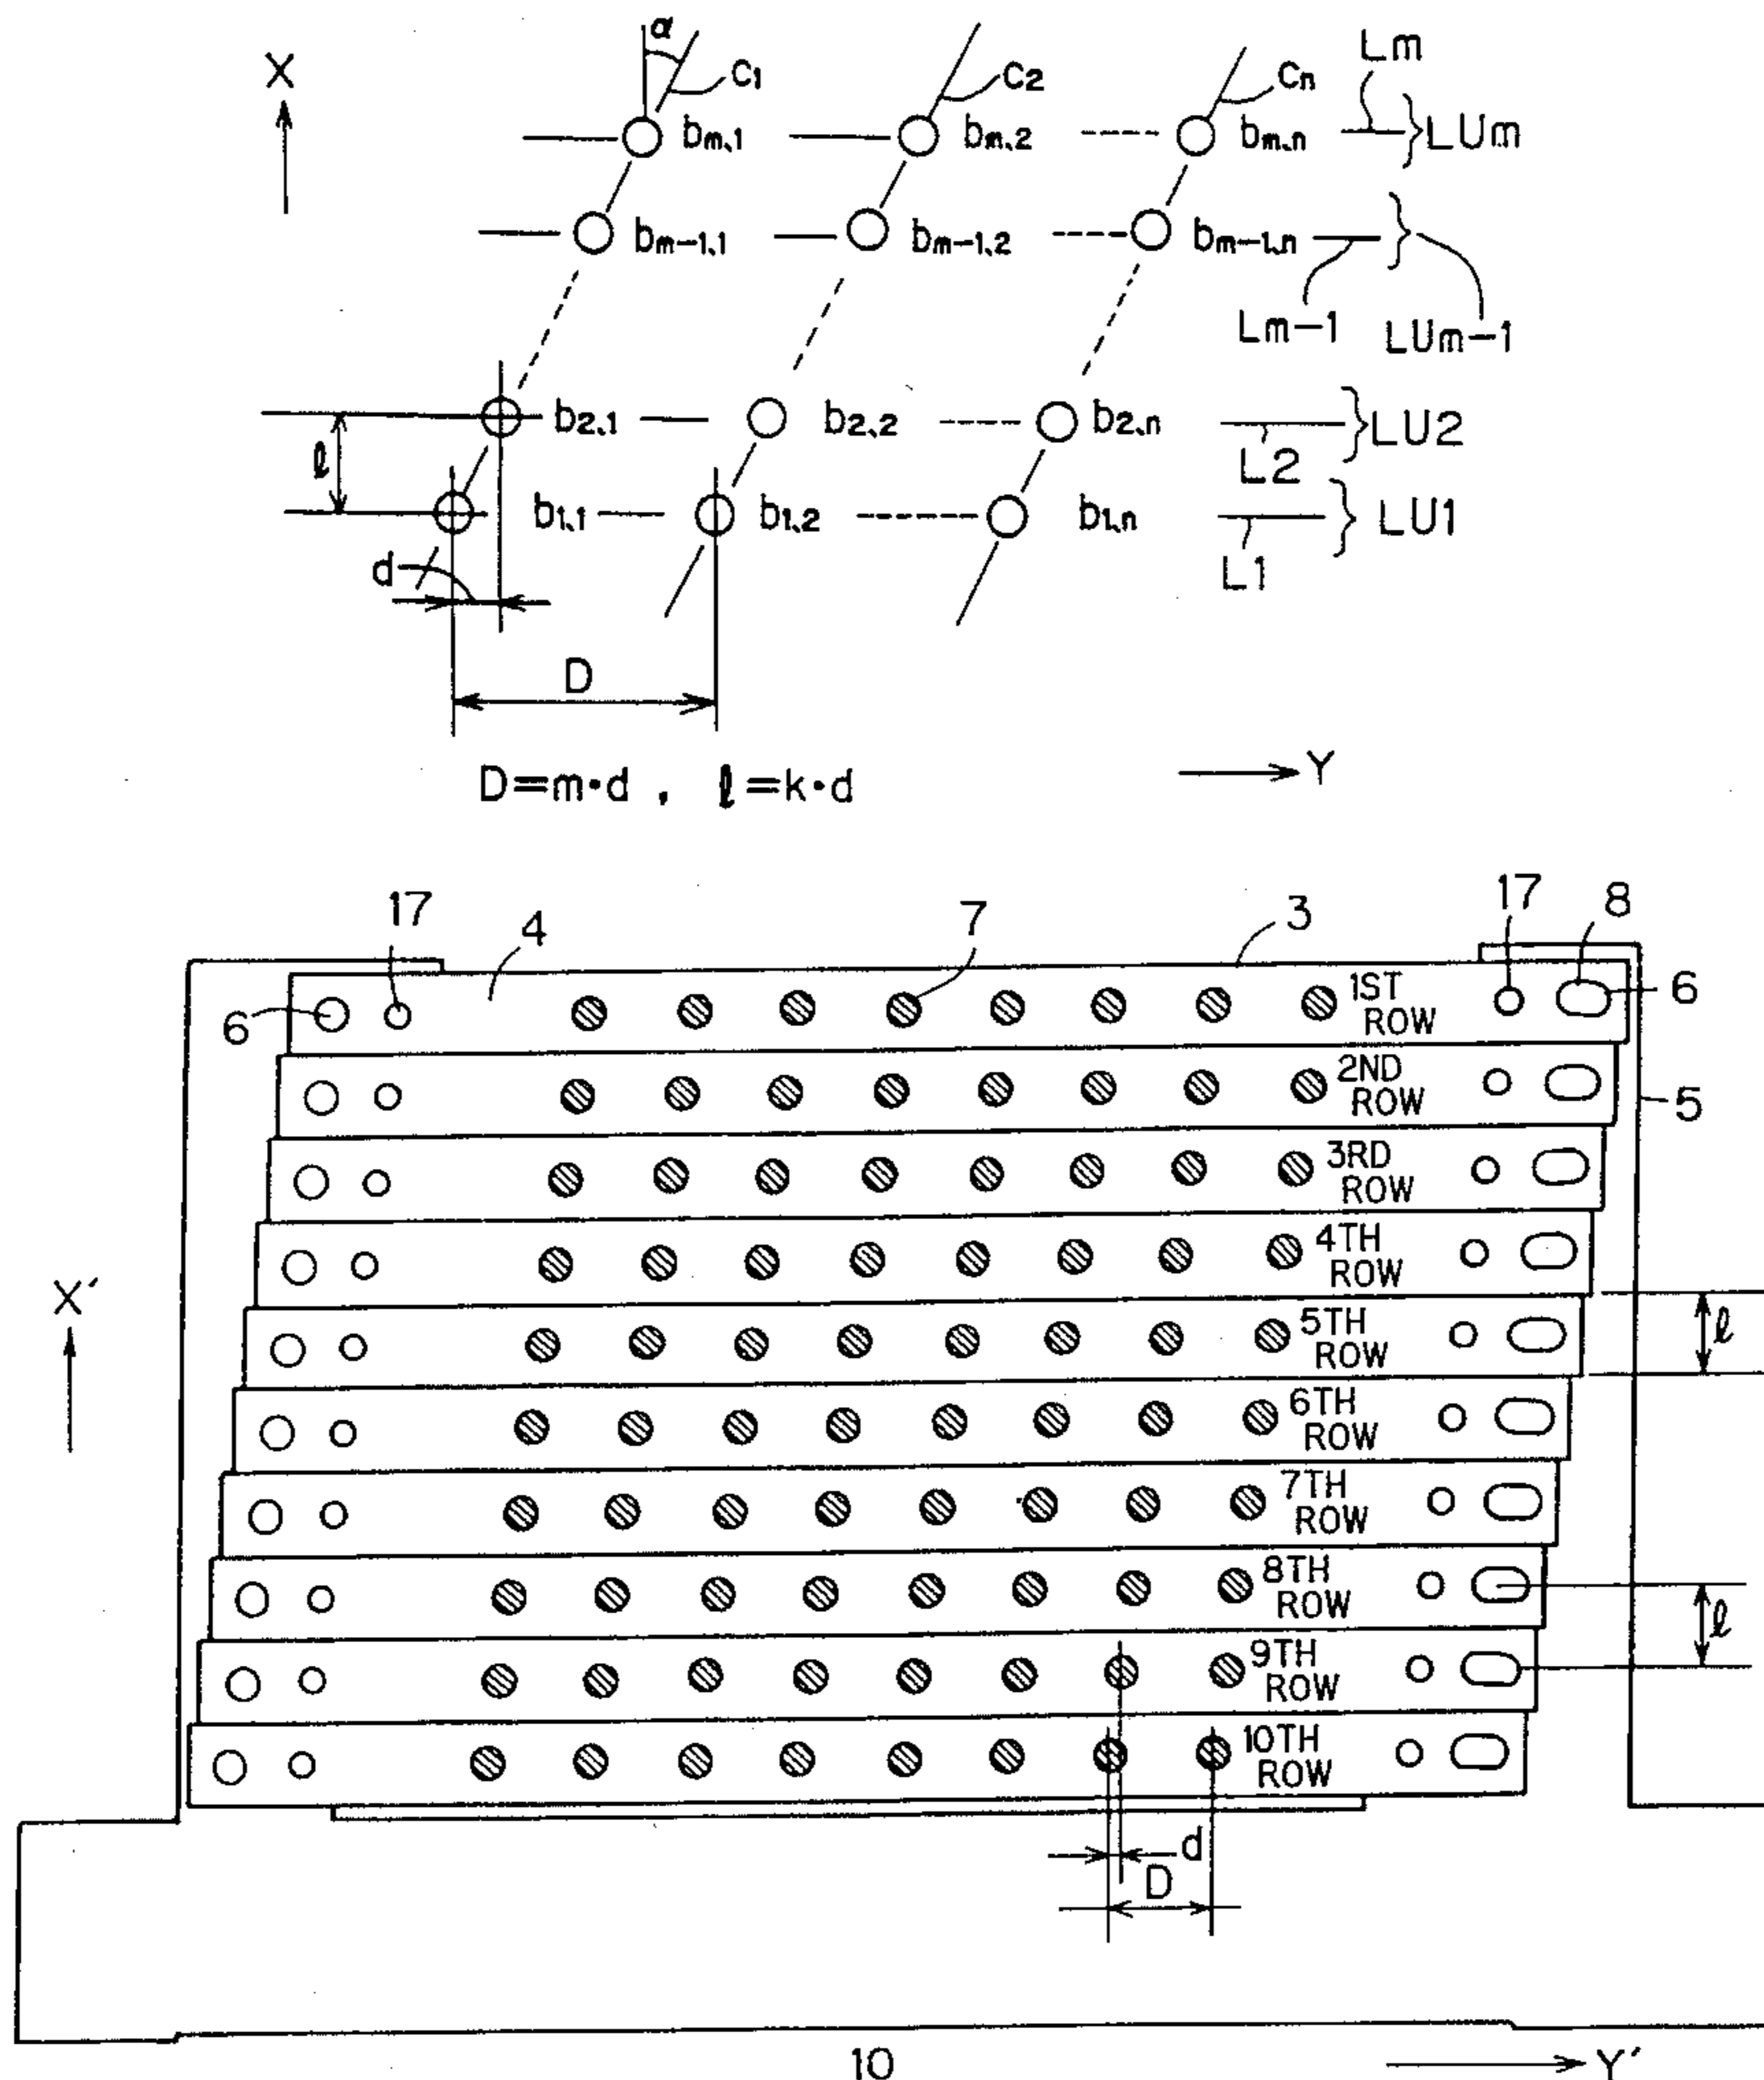 α
X
C1
C2
Cn
Lm
bm,1
bm,2
bm,n
LUm
bm-1,1
bm-1,2
bm-1,n
Lm-1
LUm-1
b2,1
b2,2
b2,n
LU2
L2
ℓ
b1,1
b1,2
b1,n
LU1
L1
d
D
Y
D=m·d , ℓ=k·d
17
4
7
3
17
8
6
6
1ST
ROW
2ND
ROW
5
3RD
ROW
4TH
ROW
X′
5TH
ROW
ℓ
6TH
ROW
7TH
ROW
8TH
ROW
ℓ
9TH
ROW
10TH
ROW
d
D
10
Y′